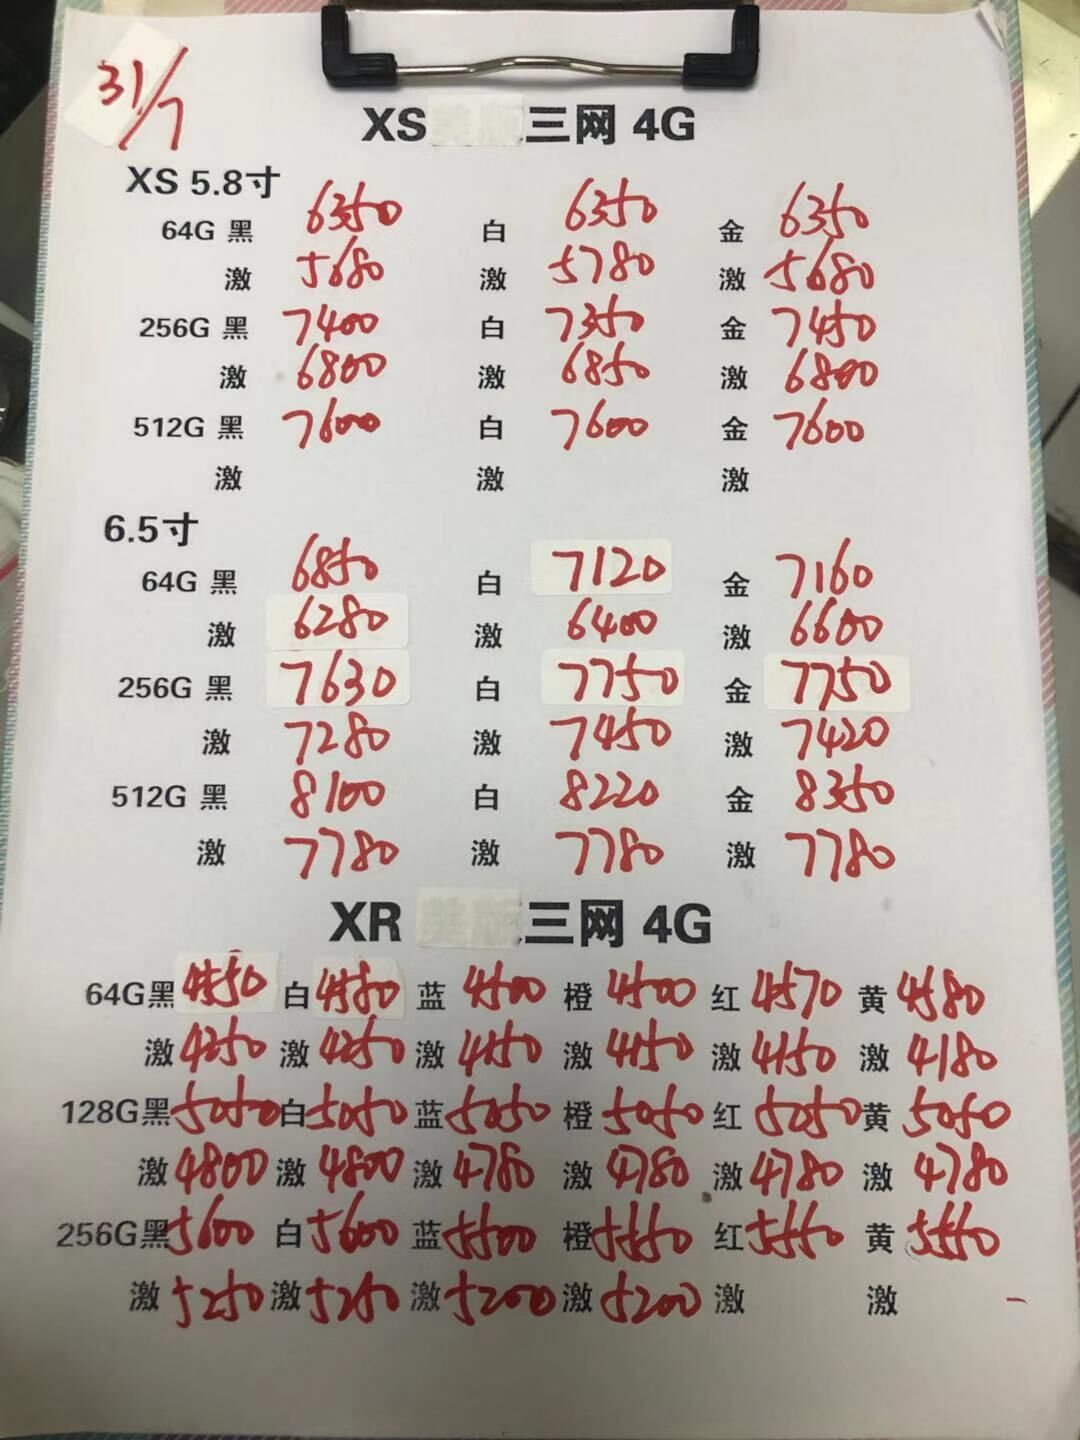 31/7
XS 三网 4G
XS 5.8寸
64G 黑 6350 白 6350 金 6350
激 5680 激 5780 激 5680
256G 黑 7400 白 7350 金 7450
激 6800 激 6850 激 6800
512G 黑 7600 白 7600 金 7600
激 激 激
6.5寸
64G 黑 6850 白 7120 金 7160
激 6280 激 6400 激 6600
256G 黑 7630 白 7750 金 7750
激 7280 激 7450 激 7420
512G 黑 8100 白 8220 金 8350
激 7780 激 7780 激 7780
XR 三网 4G
64G黑 4550 白 4580 蓝 4500 橙 4500 红 4570 黄 4580
激 4250 激 4250 激 4150 激 4150 激 4150 激 4180
128G黑 5050 白 5050 蓝 5050 橙 5050 红 5050 黄 5050
激 4800 激 4800 激 4780 激 4780 激 4780 激 4780
256G黑 5600 白 5600 蓝 5500 橙 5550 红 5550 黄 5550
激 5250 激 5250 激 5200 激 5200 激 激